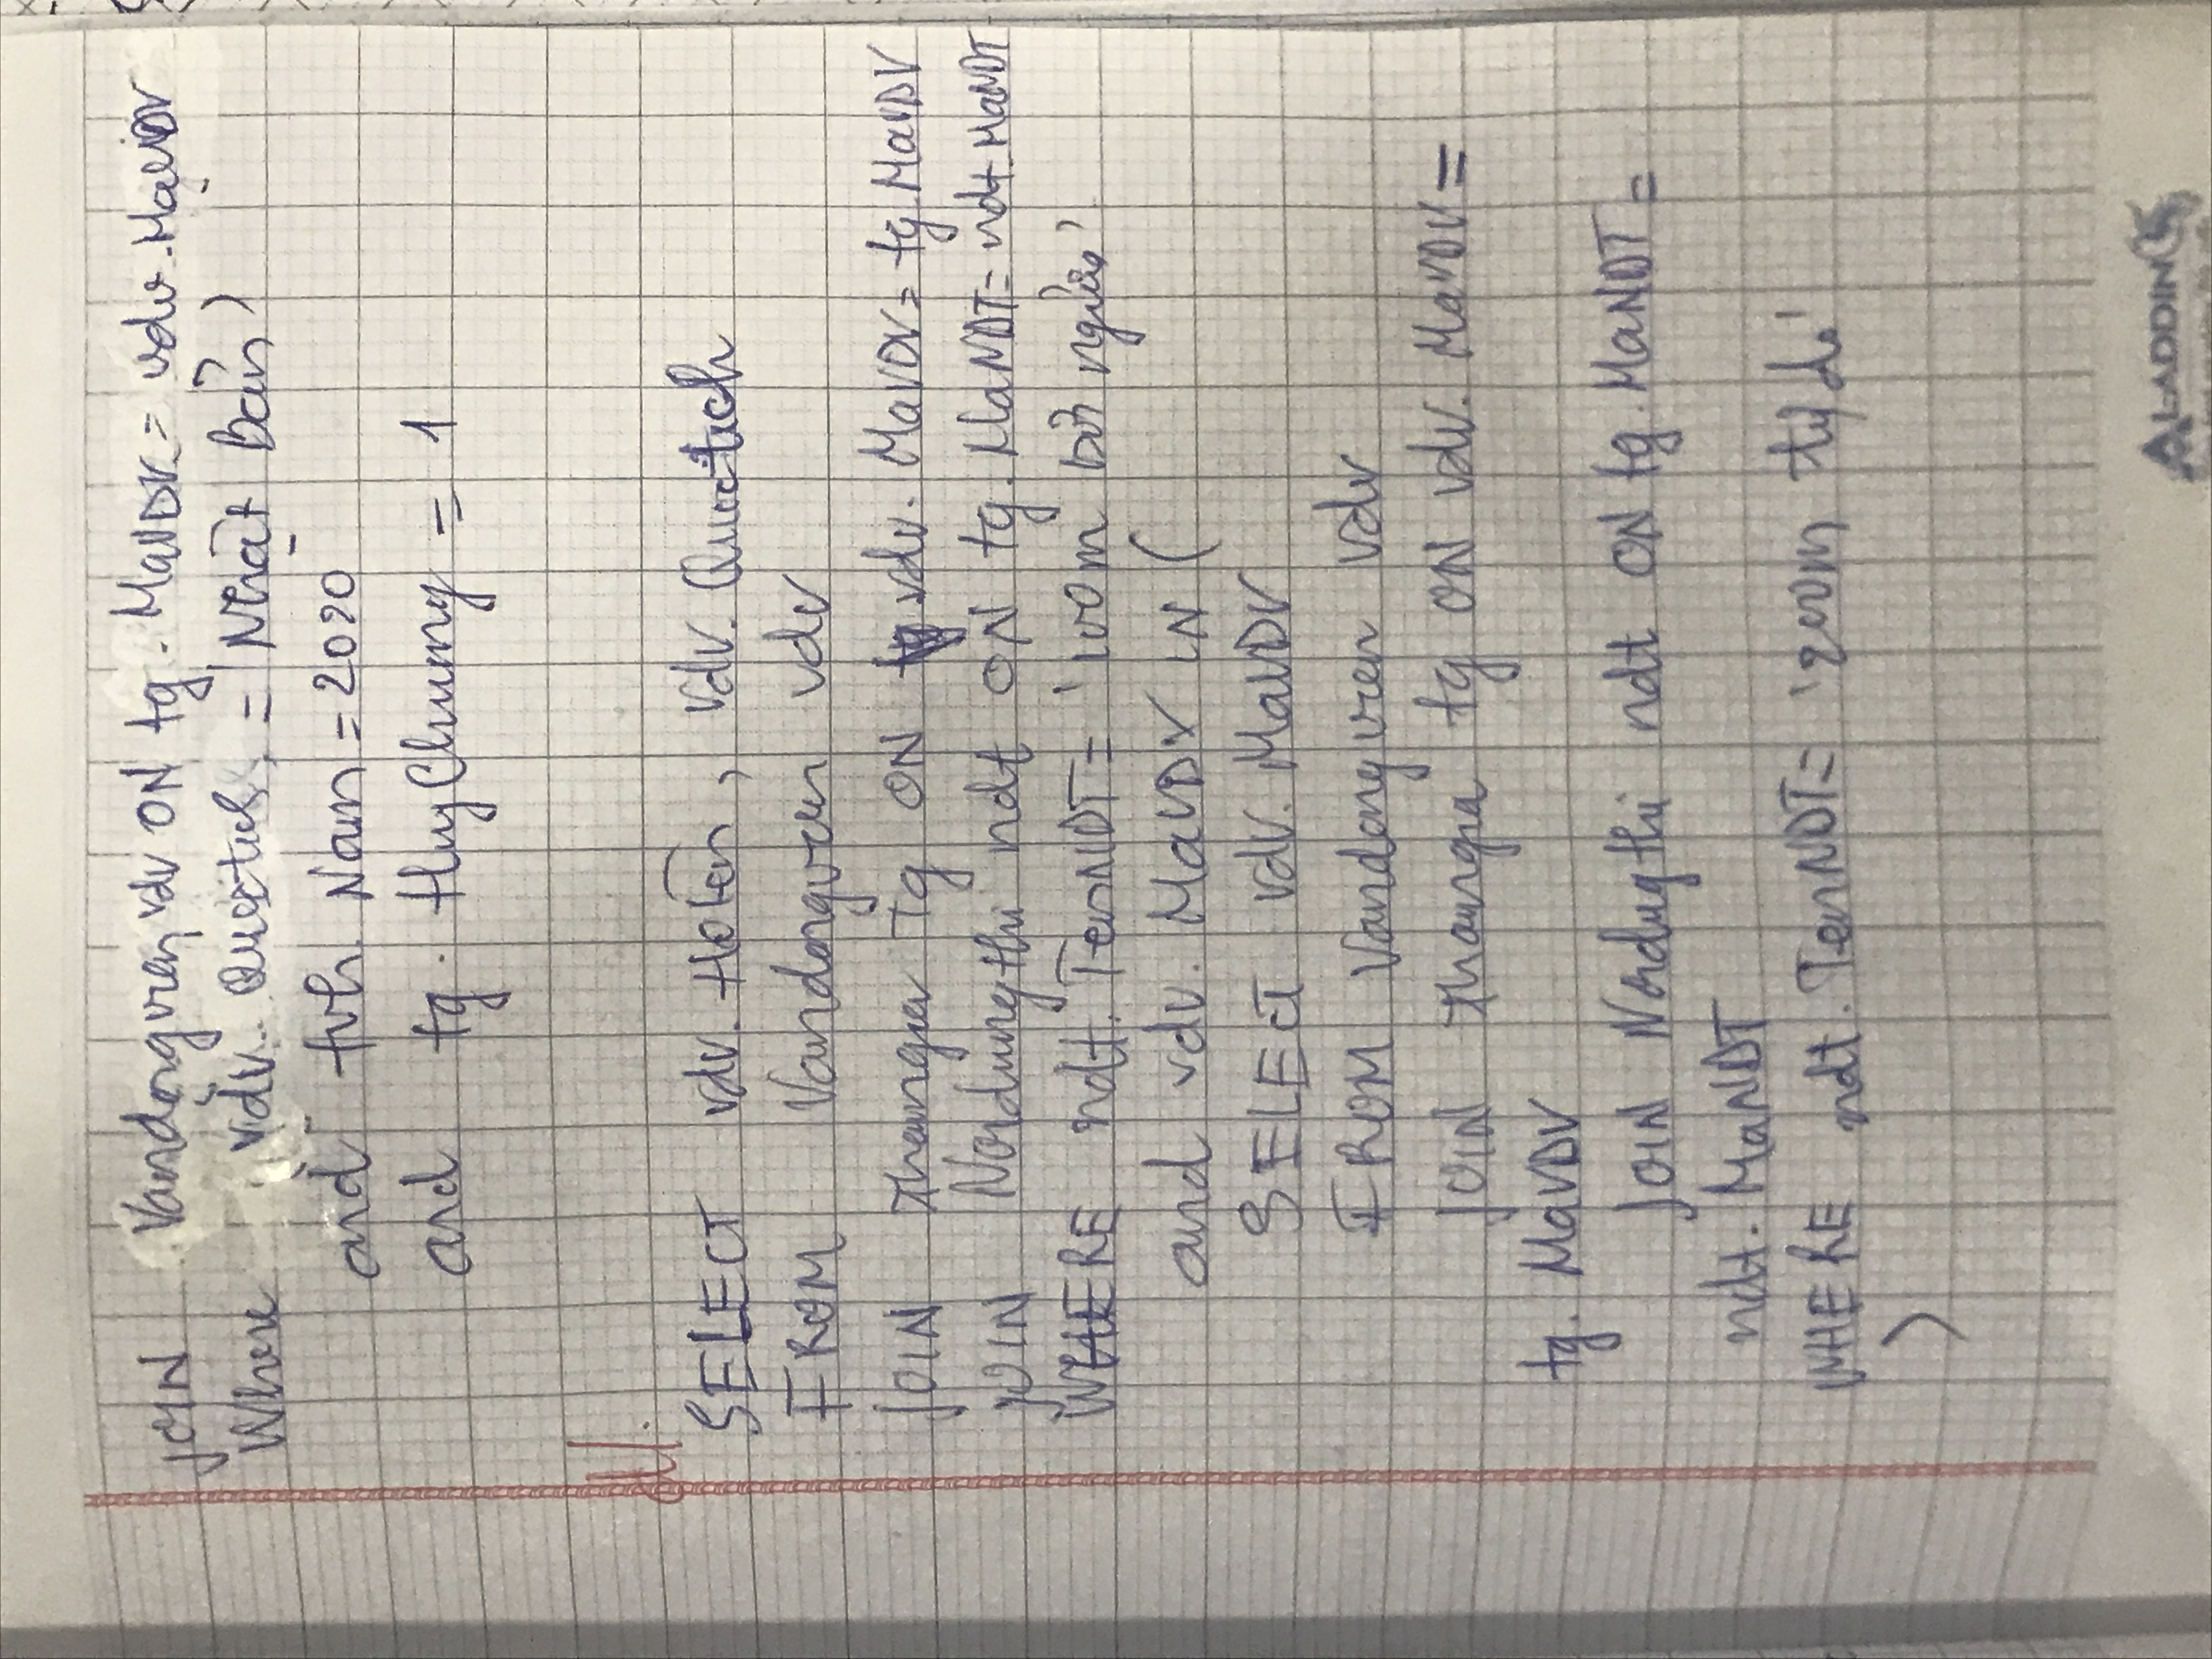 JOIN Vandongvien vdv ON tg. MaVDV = vdv. MaVDV
Where vdv. Quoctich = 'Nhật Bản'
and tvh. Nam = 2020
and tg. HuyChuong = 1
d/.
SELECT vdv. Hoten, vdv. Quoctich
FROM Vandongvien vdv
JOIN thamgia Tg ON vdv. MaVDV = tg. MaVDV
JOIN Noidungthi ndt ON tg. MaNDT = ndt. MaNDT
WHERE ndt. TenNDT = '100m bơi ngửa'
and vdv. MaVDV IN (
SELECT vdv. MaVDV
FROM Vandongvien vdv
JOIN thamgia tg ON vdv. MaVDV =
tg. MaVDV
JOIN Noidugthi ndt ON tg. MaNDT =
ndt. MaNDT
WHERE ndt. TenNDT = '200m tự do'
)
ALADDIN